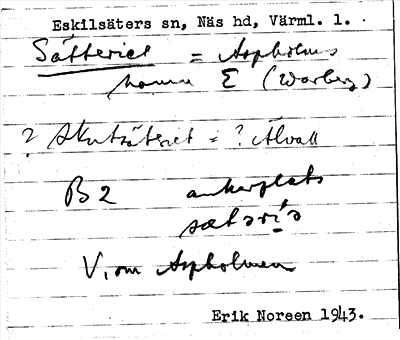 Eskilsäters sn, Näs hd, Värml. l.
Sätteriet = Aspholms
hamn E (Warberg)
? Skutsäteret = ? Älvall
B2 ankarplats
sætəri'ə
V. om Aspholmen
Erik Noreen 1943.